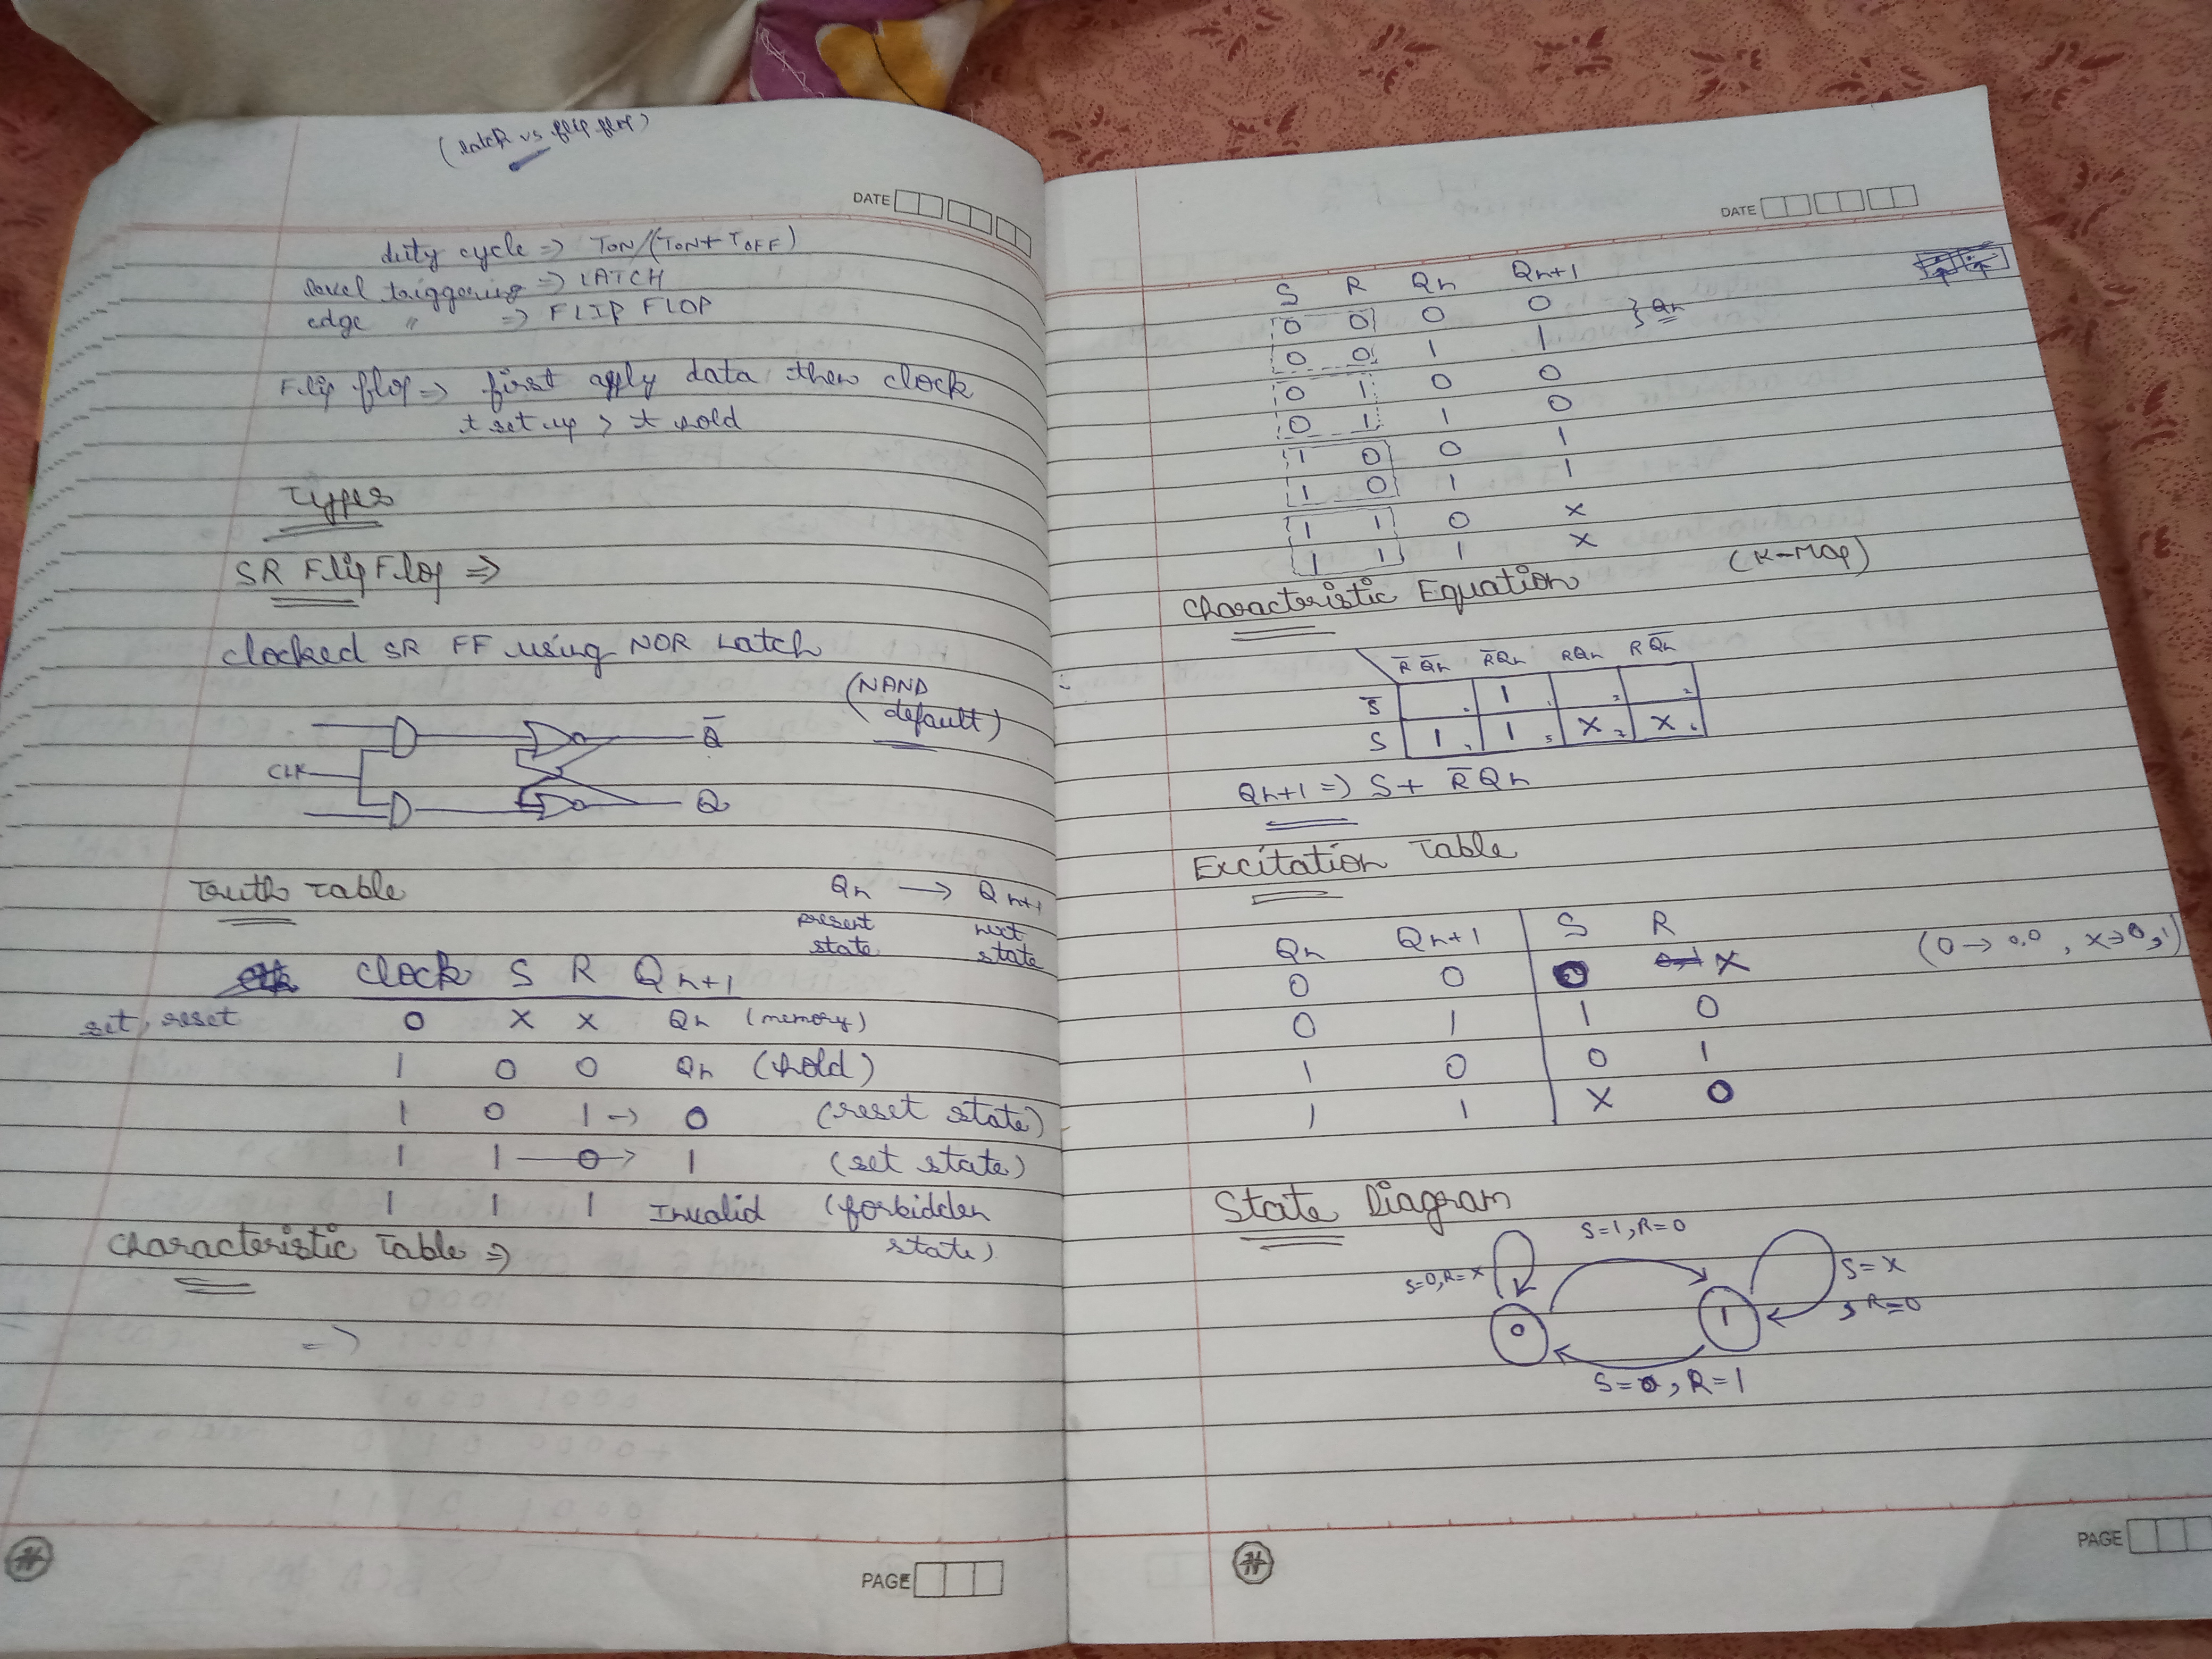 (latch vs flip flop)
DATE
duty cycle => TON/(TON+TOFF)
level triggering => LATCH
edge " => FLIP FLOP
Flip flop => first apply data then clock
t set up > t hold
Types
SR Flip Flop =>
clocked SR FF using NOR Latch
(NAND
default)
Q̅
CLK
Q
Truth Table
Qn → Qn+1
present next
state state
clock S R Qn+1
set, reset 0 X X Qn (memory)
1 0 0 Qn (hold)
1 0 1 → 0 (reset state)
1 1 — 0 → 1 (set state)
1 1 1 Invalid (forbidden
state)
Characteristic Table =>
=>
PAGE
DATE
S R Qn Qn+1
0 0 0 0 } Qn
0 0 1 1
0 1 0 0
0 1 1 0
1 0 0 1
1 0 1 1
1 1 0 X
1 1 1 X
Characteristic Equation (K-Map)
R̅Q̅n R̅Qn RQn RQ̅n
S̅ 1
S 1 1 X X
Qn+1 => S + R̅Qn
Excitation Table
Qn Qn+1 S R
0 0 0 X (0 → 0,0 , X → 0,1)
0 1 1 0
1 0 0 1
1 1 X 0
State Diagram
S=1, R=0
S=0, R=X
S=X
, R=0
0 1
S=0, R=1
PAGE